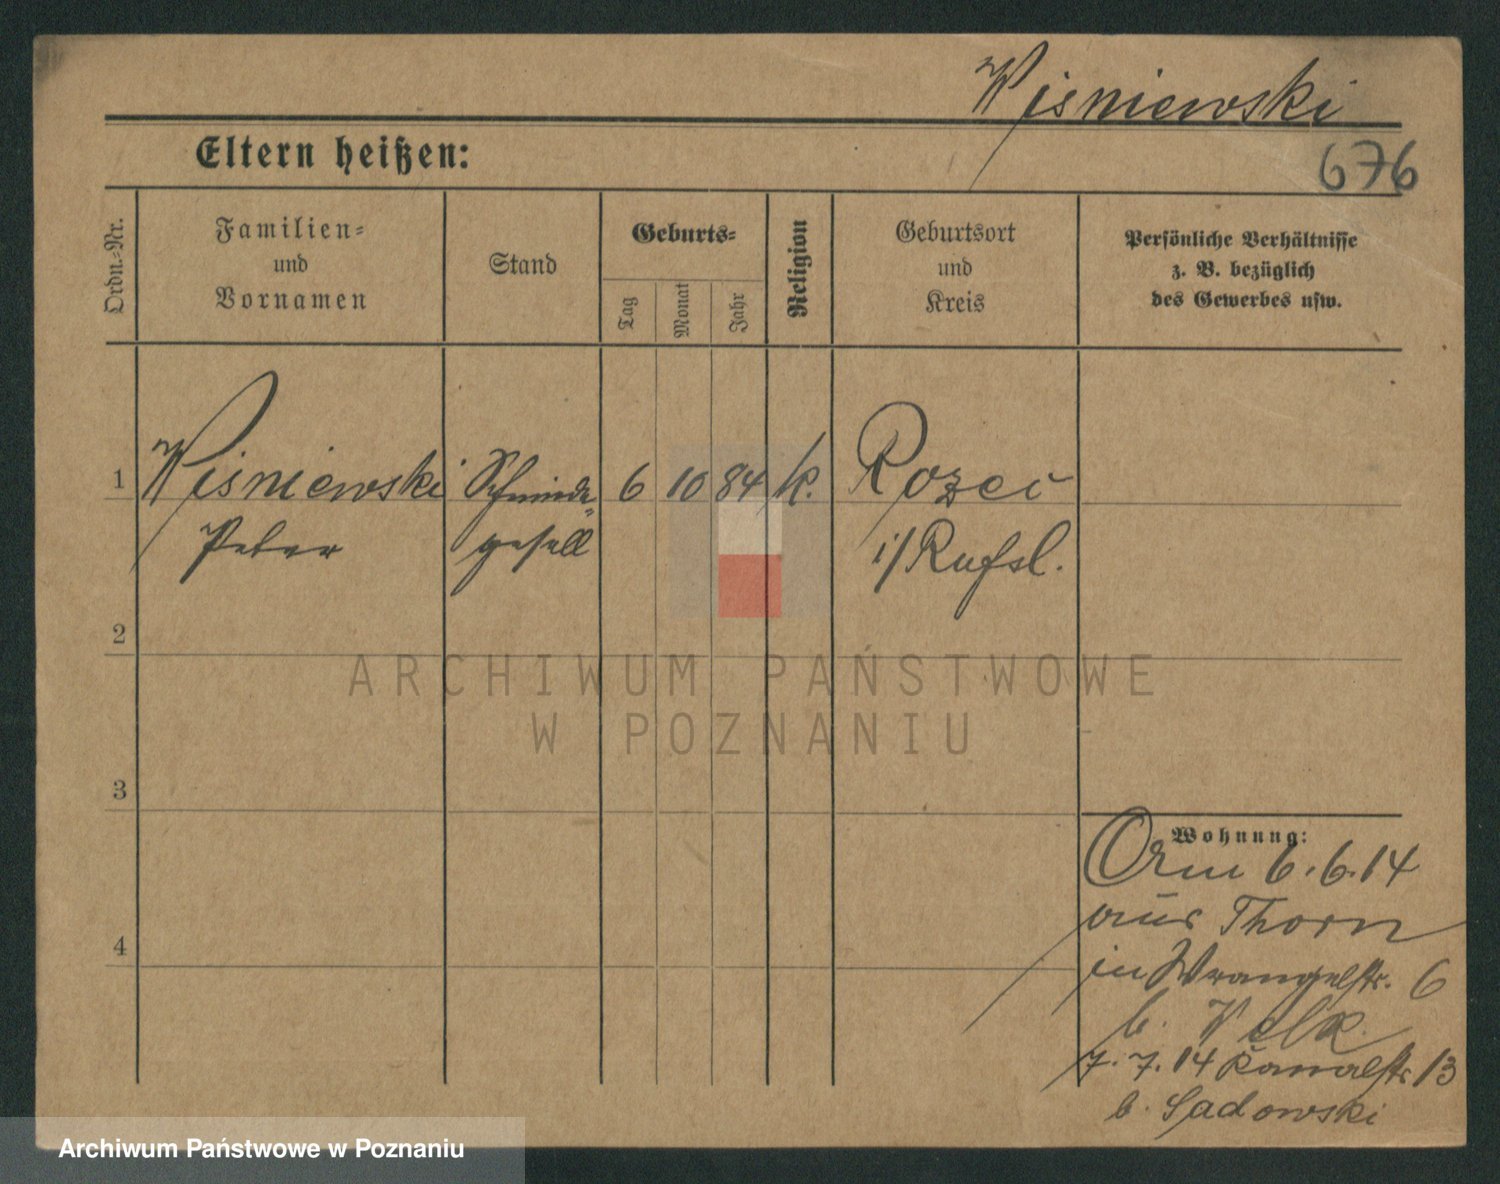 Wisniewski
Eltern heißen:
676
Ordn.-Nr.
Familien-
und
Vornamen
Stand
Geburts-
Tag
Monat
Jahr
Religion
Geburtsort
und
Kreis
Persönliche Verhältnisse
z. B. bezüglich
des Gewerbes usw.
1 Wisniewski Schmiede- 6 10 84 k.
Peter gesell i/Rußl.
2
ARCHIWUM PAŃSTWOWE
W POZNANIU
3
Wohnung:
6.6.14
aus Thorn
4
in Wrangelstr. 6
b.
7.7.14 Kanalstr 13
b. Sadowski
Archiwum Państwowe w Poznaniu